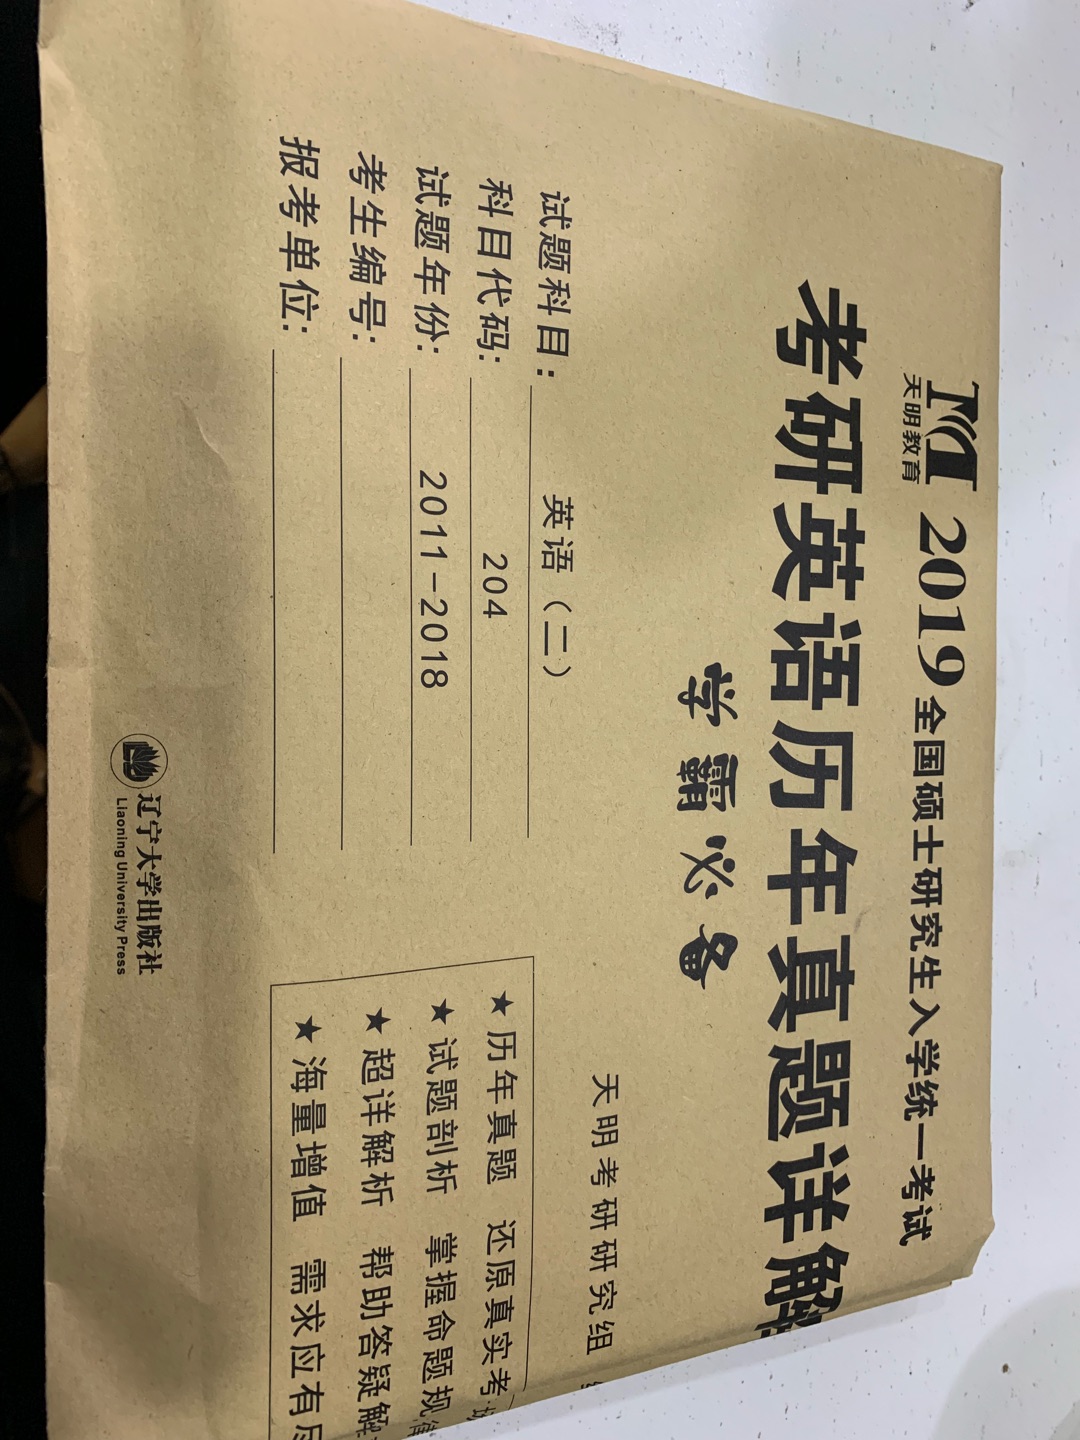 天明教育
2019全国硕士研究生入学统一考试
考研英语历年真题详解
学霸必备
天明考研研究组
试题科目: 英语(二)
科目代码: 204
试题年份: 2011-2018
考生编号:
报考单位:
★历年真题 还原真实考场
★试题剖析 掌握命题规律
★超详解析 帮助答疑解
★海量增值 需求应有尽
辽宁大学出版社
Liaoning University Press